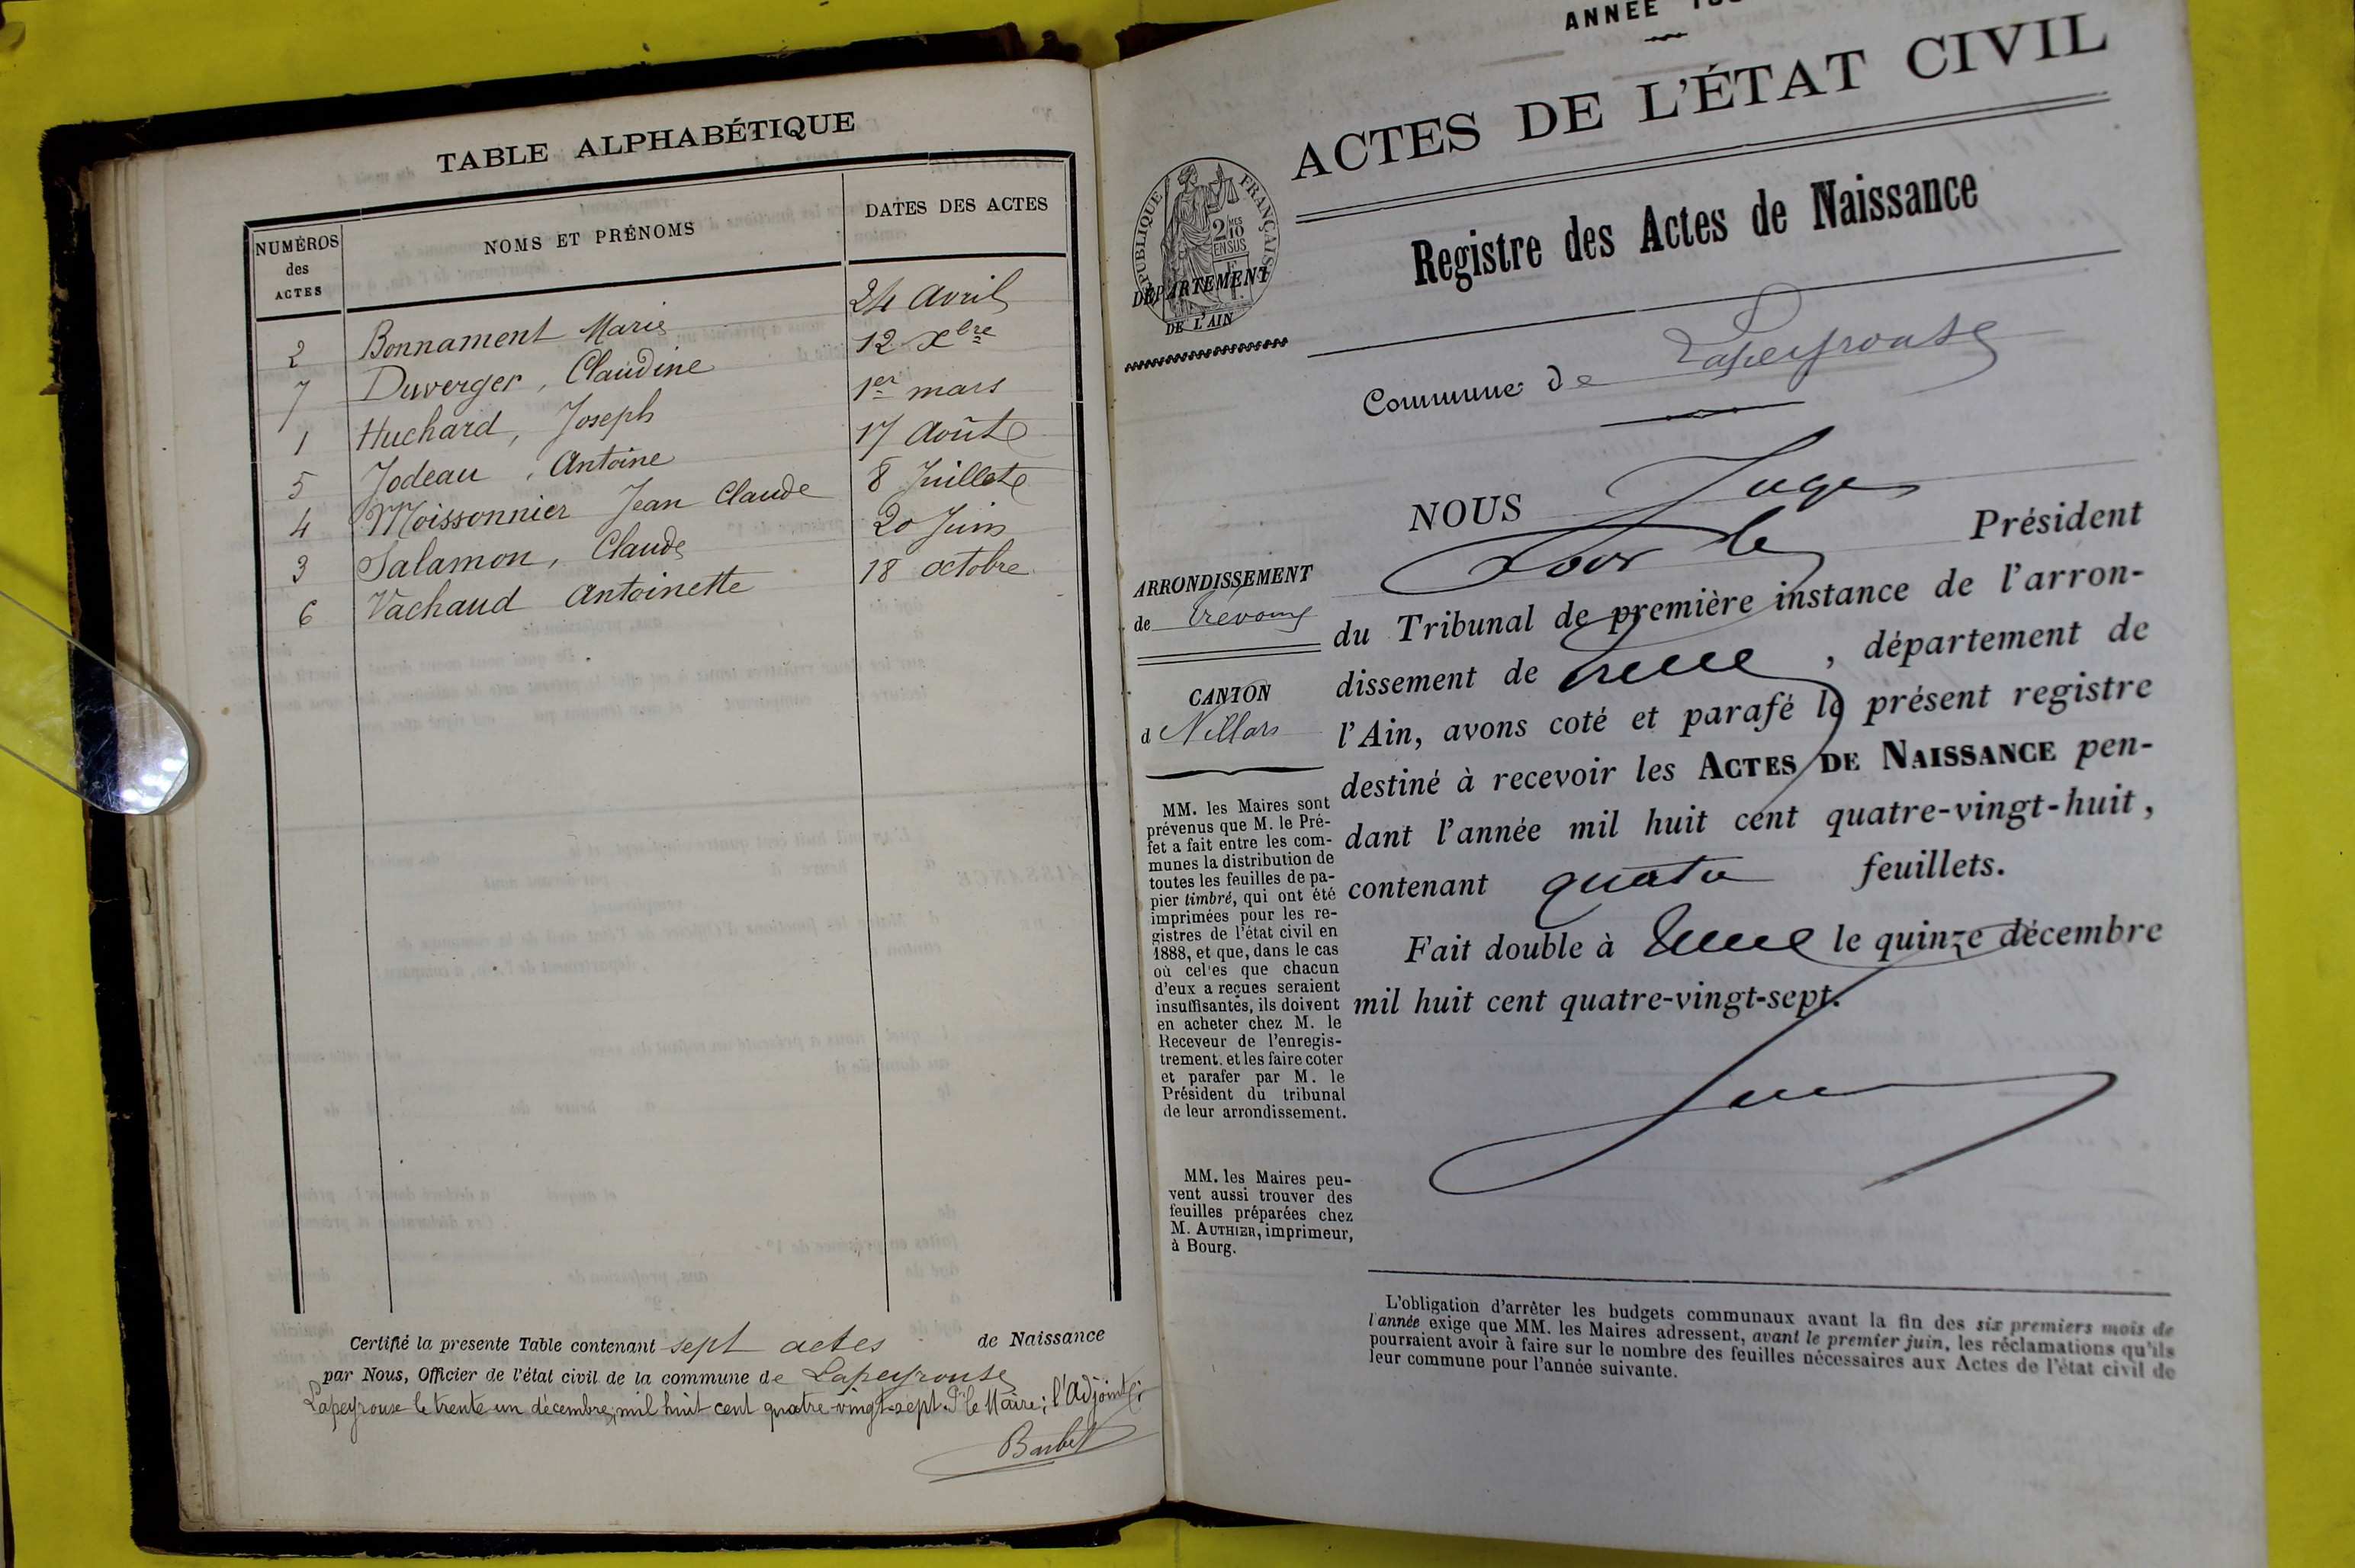 TABLE ALPHABÉTIQUE
NUMÉROS des ACTES NOMS ET PRÉNOMS DATES DES ACTES
2 Bonnament Marie 24 Avril
7 Duverger, Claudine 12 Xbre
1 Huchard, Joseph 1er mars
5 Jodeau, Antoine 17 Août
4 Moissonnier Jean Claude 8 Juillet
3 Salamon, Claude 20 Juin
6 Vachaud Antoinette 18 octobre
Certifié la presente Table contenant sept actes de Naissance
par Nous, Officier de l'état civil de la commune de Lapeyrouse
Lapeyrouse le trente un décembre, mil huit cent quatre-vingt-sept. Pr le Maire; l'Adjoint:
Barbet
ANNÉE
ACTES DE L'ÉTAT CIVIL
RÉPUBLIQUE FRANÇAISE
2/10 EN SUS
DÉPARTEMENT
DE L'AIN
Registre des Actes de Naissance
Commune de Lapeyrouse
NOUS Juge
Président
ARRONDISSEMENT
de Trevoux
CANTON
d Villars
du Tribunal de première instance de l'arron-
dissement de , département de
l'Ain, avons coté et parafé le présent registre
destiné à recevoir les ACTES DE NAISSANCE pen-
dant l'année mil huit cent quatre-vingt-huit,
contenant quatre feuillets.
Fait double à le quinze décembre
mil huit cent quatre-vingt-sept.
MM. les Maires sont
prévenus que M. le Pré-
fet a fait entre les com-
munes la distribution de
toutes les feuilles de pa-
pier timbré, qui ont été
imprimées pour les re-
gistres de l'état civil en
1888, et que, dans le cas
où celles que chacun
d'eux a reçues seraient
insuffisantes, ils doivent
en acheter chez M. le
Receveur de l'enregis-
trement. et les faire coter
et parafer par M. le
Président du tribunal
de leur arrondissement.
MM. les Maires peu-
vent aussi trouver des
feuilles préparées chez
M. AUTHIER, imprimeur,
à Bourg.
L'obligation d'arrêter les budgets communaux avant la fin des six premiers mois de
l'année exige que MM. les Maires adressent, avant le premier juin, les réclamations qu'ils
pourraient avoir à faire sur le nombre des feuilles nécessaires aux Actes de l'état civil de
leur commune pour l'année suivante.